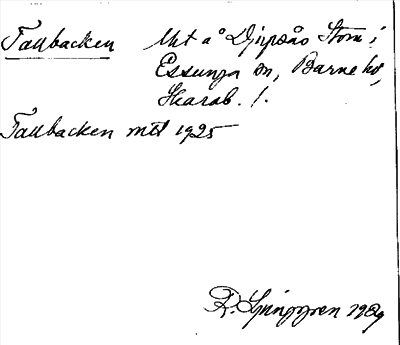 Tallbacken Ukt å Djupsås Stom i
Essunga sn, Barne hd,
Skarab. l.
Tallbacken mtl 1925
R. Ljunggren 1929